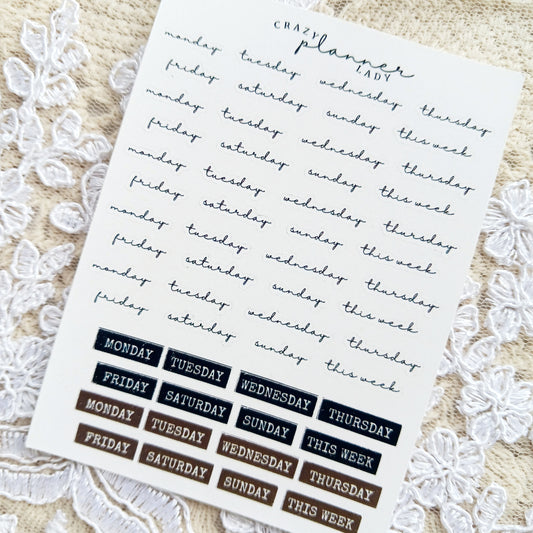 CRAZY
planner
LADY
monday tuesday wednesday thursday
friday saturday sunday this week
monday tuesday wednesday thursday
friday saturday sunday this week
monday tuesday wednesday thursday
friday saturday sunday this week
monday tuesday wednesday thursday
friday saturday sunday this week
monday tuesday wednesday thursday
friday saturday sunday this week
MONDAY TUESDAY WEDNESDAY THURSDAY
FRIDAY SATURDAY SUNDAY THIS WEEK
MONDAY TUESDAY WEDNESDAY THURSDAY
FRIDAY SATURDAY SUNDAY THIS WEEK